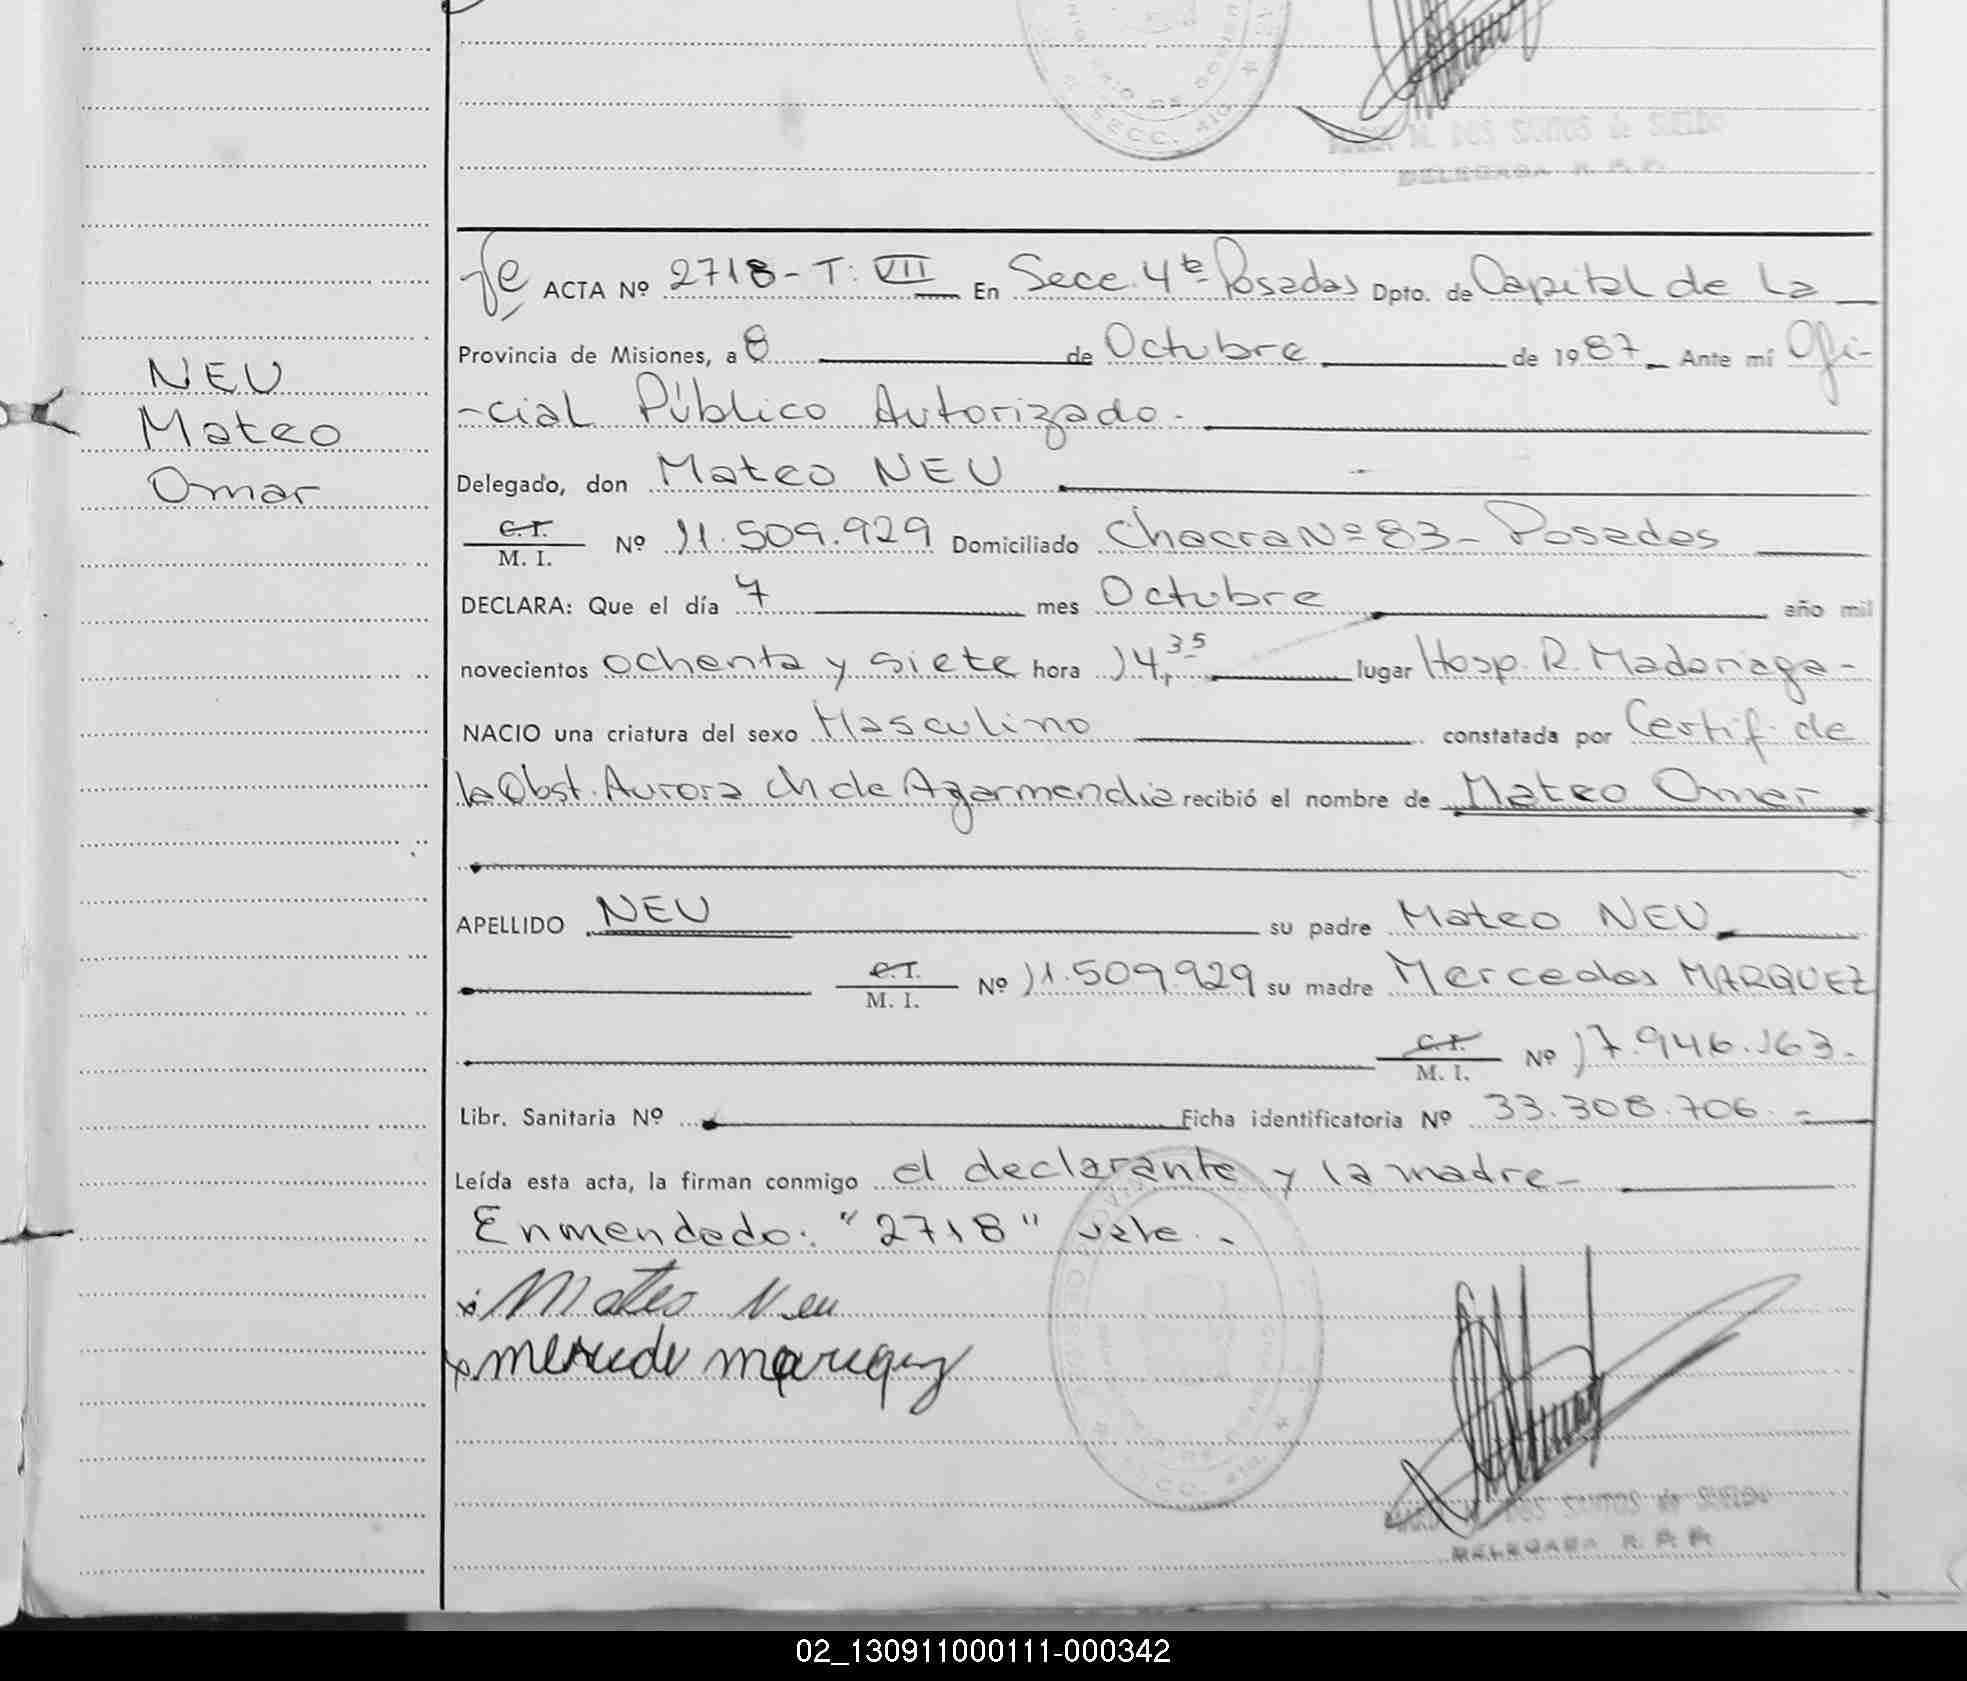 SECC. 4ta
DOS SANTOS de SUELDO
DELEGADA R. P. P.
NEU
Mateo
Omar
ACTA Nº 2718 - T: VII En Secc. 4ta Posadas Dpto. de Capital de La
Provincia de Misiones, a 8 de Octubre de 1987 Ante mí Ofi-
-cial Público Autorizado.-
Delegado, don Mateo NEU
C.I.
M. I. Nº 11.509.929 Domiciliado Chacra Nº 83 - Posadas
DECLARA: Que el día 7 mes Octubre año mil
novecientos ochenta y siete hora 14,35 lugar Hosp. R. Madariaga -
NACIO una criatura del sexo Masculino constatada por Certif. de
la Obst. Aurora Ch de Agarmendia recibió el nombre de Mateo Omar
APELLIDO NEU su padre Mateo NEU
C.I.
M. I. Nº 11.509.929 su madre Mercedes MARQUEZ
C.I.
M. I. Nº 17.946.163.-
Libr. Sanitaria Nº Ficha identificatoria Nº 33.308.706.-
Leída esta acta, la firman conmigo el declarante y la madre -
Enmendado: "2718" vale.-
x Mateo Neu
x mercede marquez
DOS SANTOS de SUELDO
DELEGADA R. P. P.
02_130911000111-000342